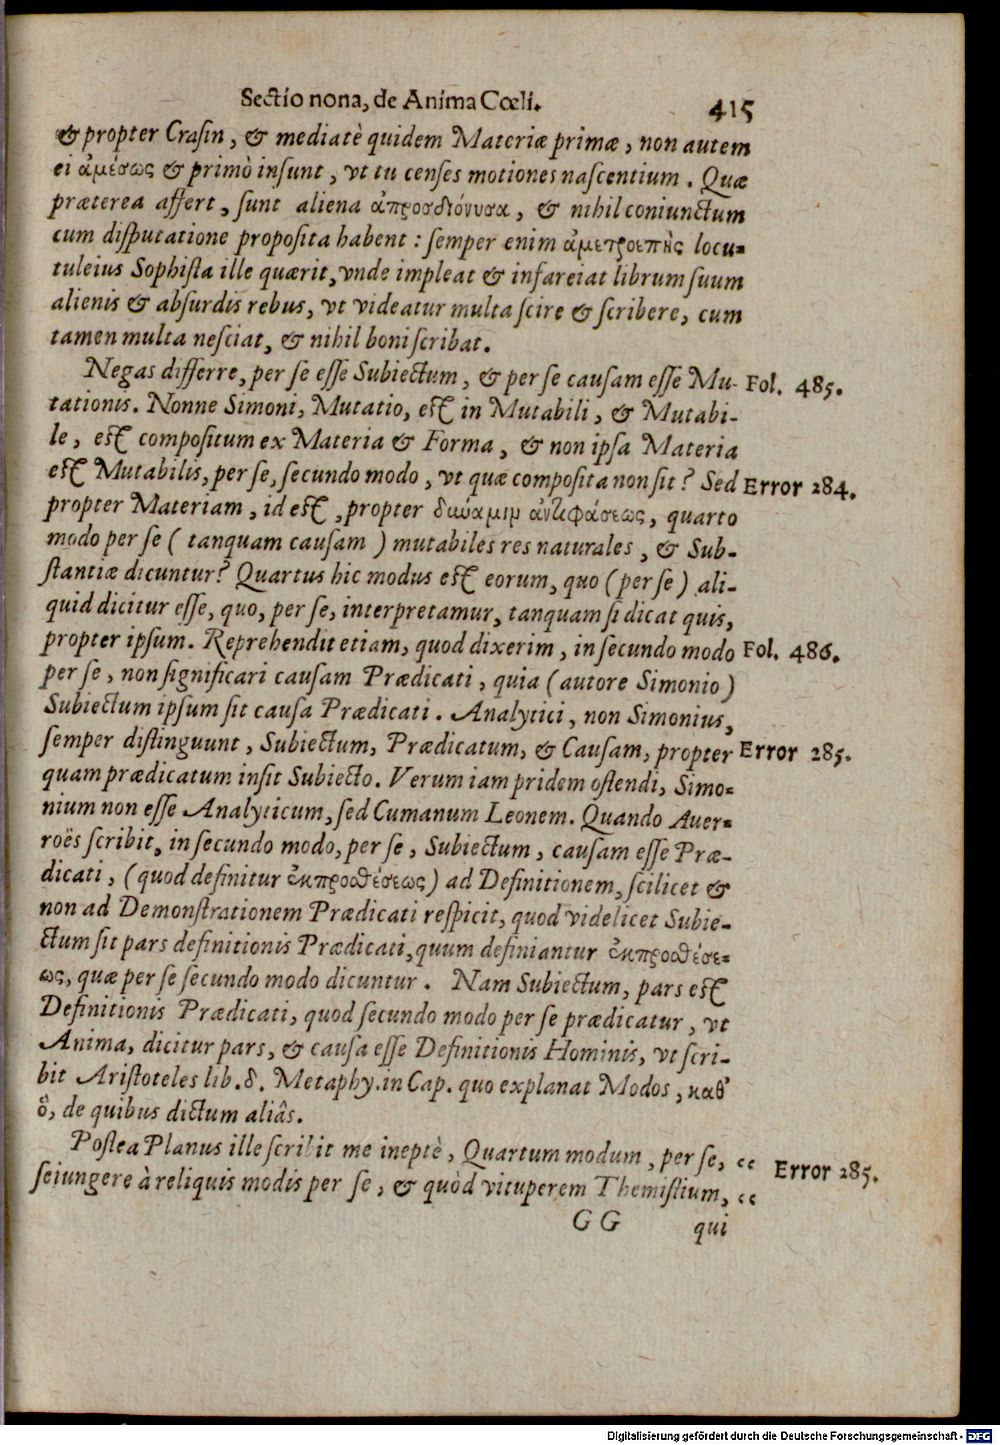 Sectio nona, de Anima Cœli. 415
& propter Crasin, & mediatè quidem Materiæ primæ, non autem
ei ἀμέσως & primò insunt, vt tu censes motiones nascentium. Quæ
præterea affert, sunt aliena ἀπροσδιόνυσα, & nihil coniunctum
cum disputatione proposita habent: semper enim ἀμετροεπὴς locu-
tuleius Sophista ille quærit, vnde impleat & infareiat librum suum
alienis & absurdis rebus, vt videatur multa scire & scribere, cum
tamen multa nesciat, & nihil boni scribat.
Negas differre, per se esse Subiectum, & per se causam esse Mu- Fol. 485.
tationis. Nonne Simoni, Mutatio, est in Mutabili, & Mutabi-
le, est compositum ex Materia & Forma, & non ipsa Materia
est Mutabilis, per se, secundo modo, vt quæ composita non sit? Sed Error 284.
propter Materiam, id est, propter δύναμιν ἀντιφάσεως, quarto
modo per se ( tanquam causam ) mutabiles res naturales, & Sub-
stantiæ dicuntur? Quartus hic modus est eorum, quo (per se) ali-
quid dicitur esse, quo, per se, interpretamur, tanquam si dicat quis,
propter ipsum. Reprehendit etiam, quod dixerim, in secundo modo Fol. 486.
per se, non significari causam Prædicati, quia (autore Simonio)
Subiectum ipsum sit causa Prædicati. Analytici, non Simonius,
semper distinguunt, Subiectum, Prædicatum, & Causam, propter Error 285.
quam prædicatum insit Subiecto. Verum iam pridem ostendi, Simo-
nium non esse Analyticum, sed Cumanum Leonem. Quando Auer-
roës scribit, in secundo modo, per se, Subiectum, causam esse Præ-
dicati, (quod definitur ἐκπροσθέσεως) ad Definitionem, scilicet &
non ad Demonstrationem Prædicati respicit, quod videlicet Subie-
ctum sit pars definitionis Prædicati, quum definiantur ἐκπροσθέσε-
ως, quæ per se secundo modo dicuntur. Nam Subiectum, pars est
Definitionis Prædicati, quod secundo modo per se prædicatur, vt
Anima, dicitur pars, & causa esse Definitionis Hominis, vt scri-
bit Aristoteles lib. δ. Metaphy. in Cap. quo explanat Modos, καθ’
ὃ, de quibus dictum aliâs.
Postea Planus ille scribit me ineptè, Quartum modum, per se, “ Error 285.
seiungere à reliquis modis per se, & quòd vituperem Themistium, “
GG qui
Digitalisierung gefördert durch die Deutsche Forschungsgemeinschaft - DFG